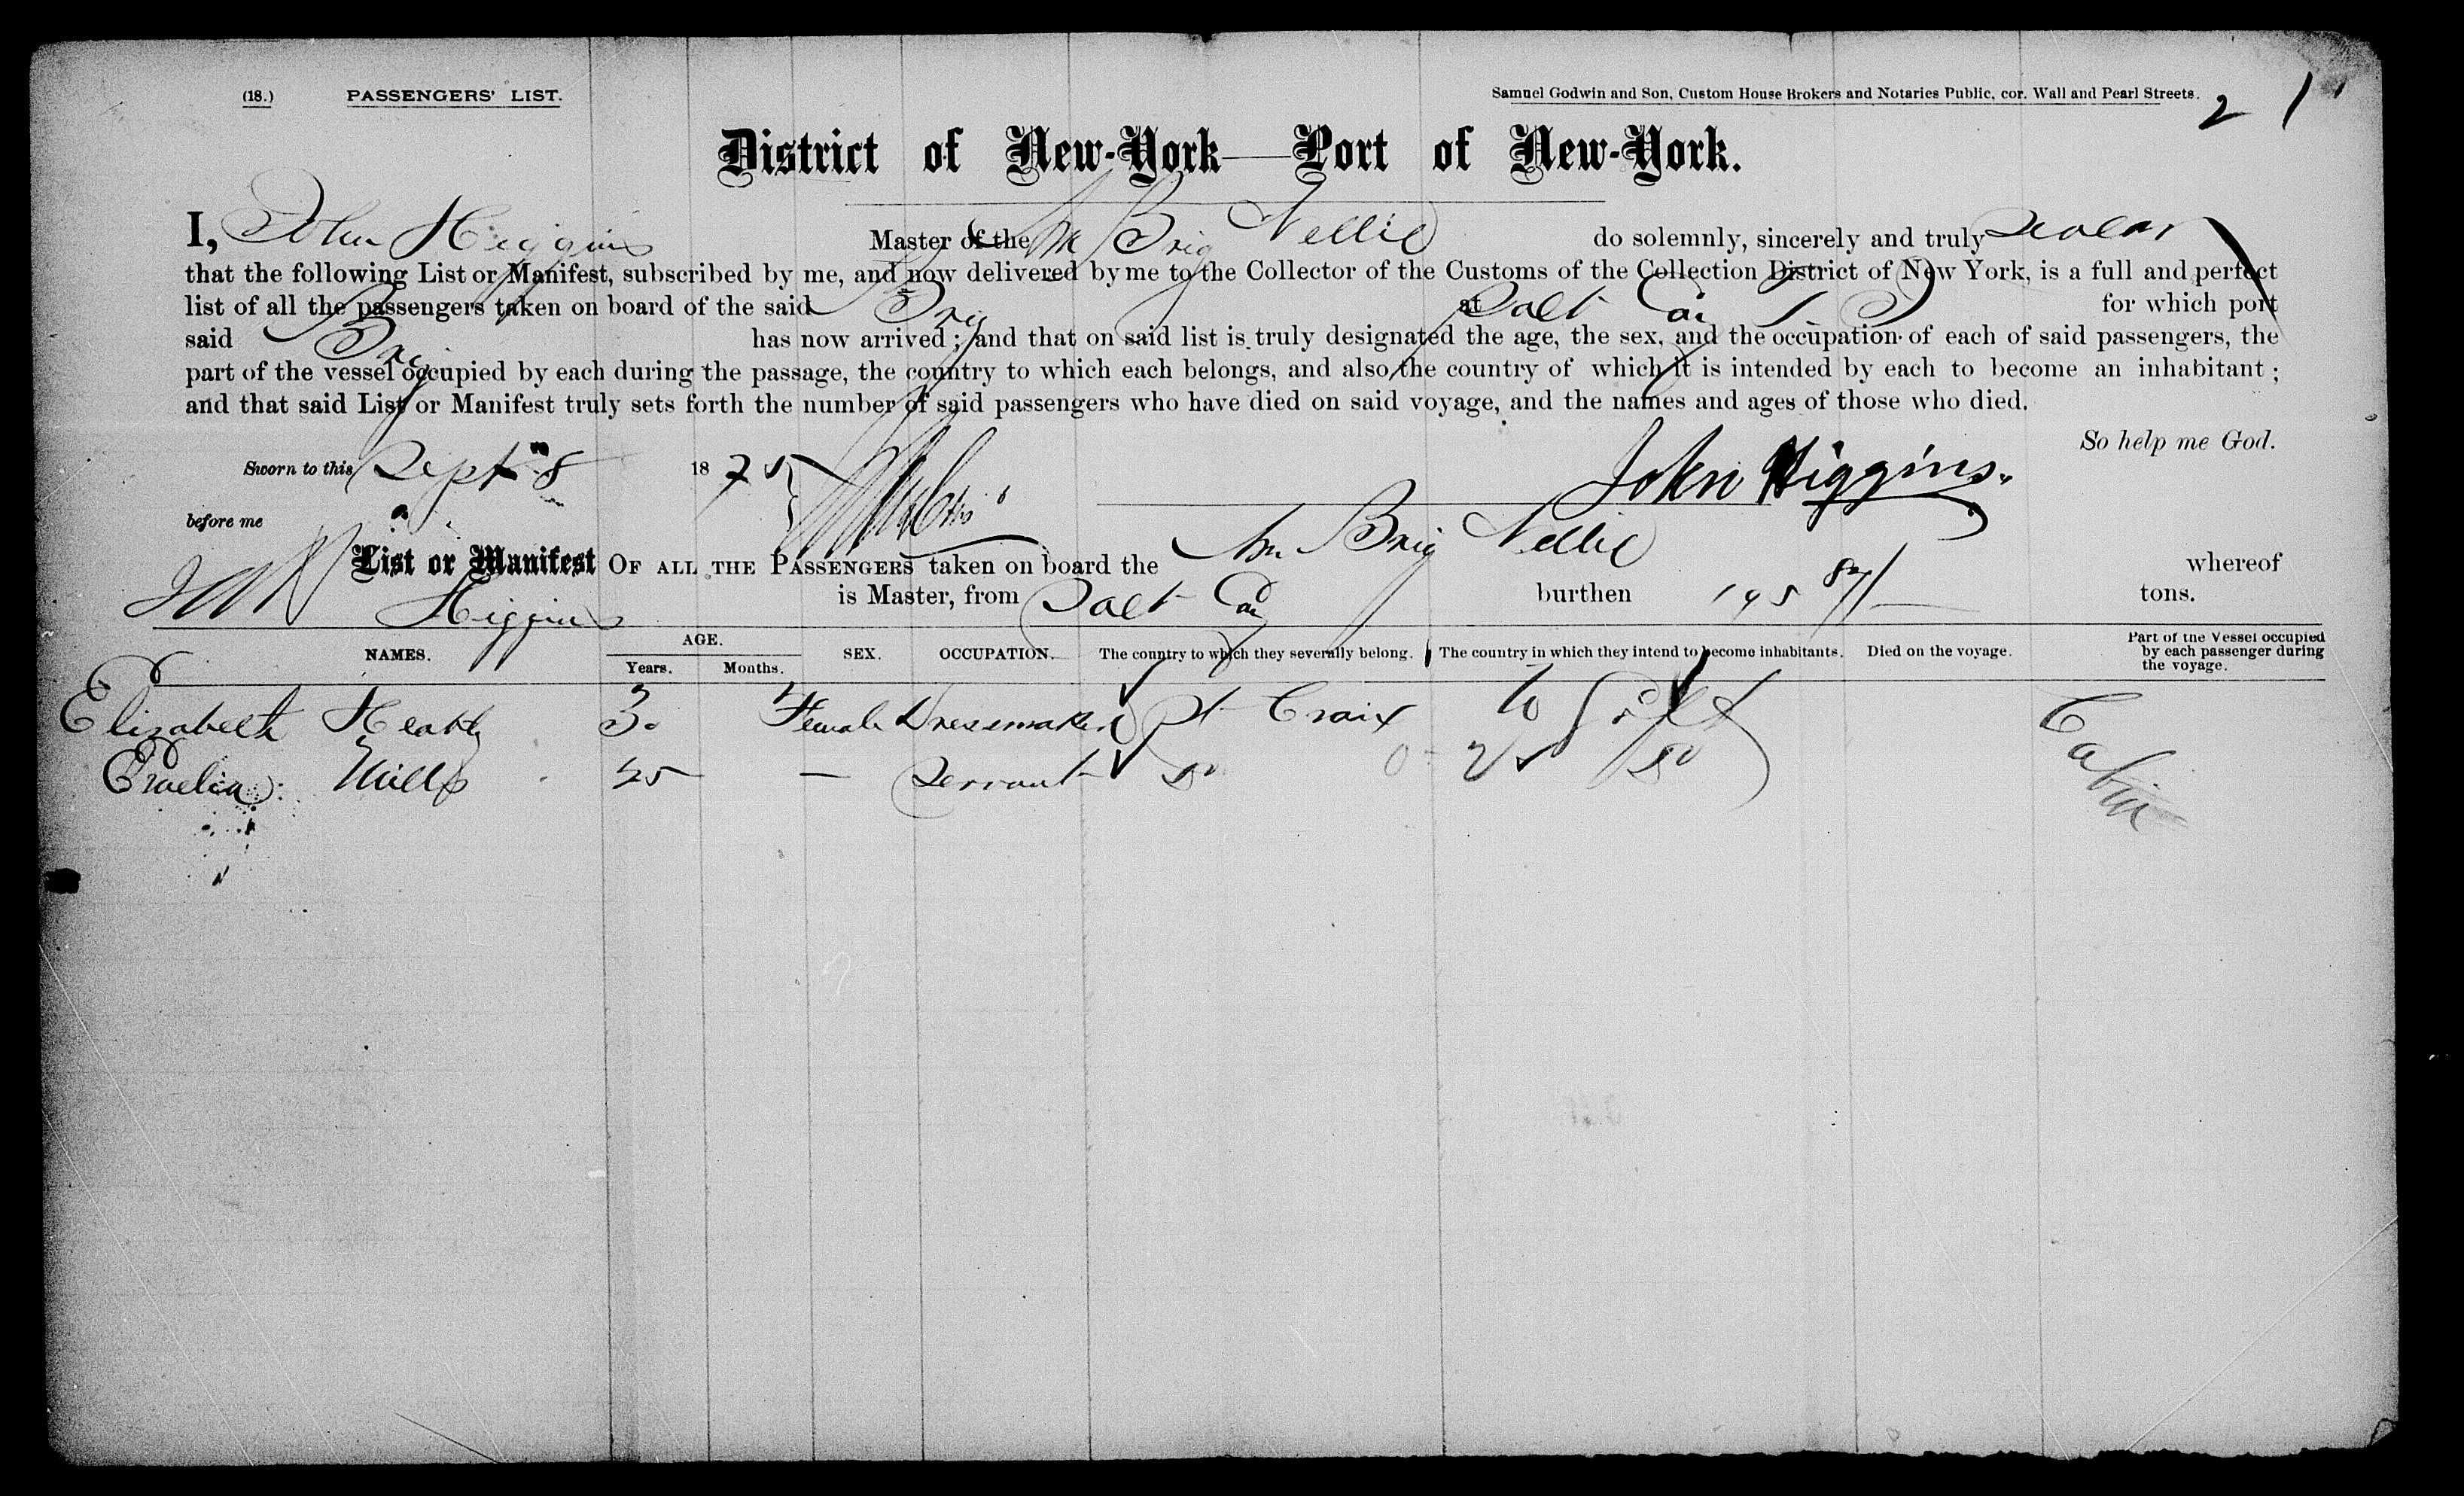 (18.) PASSENGERS' LIST. Samuel Godwin and Son, Custom House Brokers and Notaries Public, cor. Wall and Pearl Streets. 2 1
District of New-York—Port of New-York.
I, John Higgins Master of the Am Brig Nellie do solemnly, sincerely and truly swear
that the following List or Manifest, subscribed by me, and now delivered by me to the Collector of the Customs of the Collection District of New York, is a full and perfect
list of all the passengers taken on board of the said Brig at Salt Cay for which port
said Brig has now arrived; and that on said list is truly designated the age, the sex, and the occupation of each of said passengers, the
part of the vessel occupied by each during the passage, the country to which each belongs, and also the country of which it is intended by each to become an inhabitant;
and that said List or Manifest truly sets forth the number of said passengers who have died on said voyage, and the names and ages of those who died.
So help me God.
Sworn to this Sept 8 1875 John Higgins.
before me
List or Manifest OF ALL THE PASSENGERS taken on board the Am Brig Nellie whereof
Higgins is Master, from Salt Cay burthen 195 tons.
NAMES. AGE. Years. Months. SEX. OCCUPATION. The country to which they severally belong. The country in which they intend to become inhabitants. Died on the voyage. Part of the Vessel occupied by each passenger during the voyage.
Elizabeth 30 Female Dressmaker St Craix Cabin
Mills 25 — Servant do do